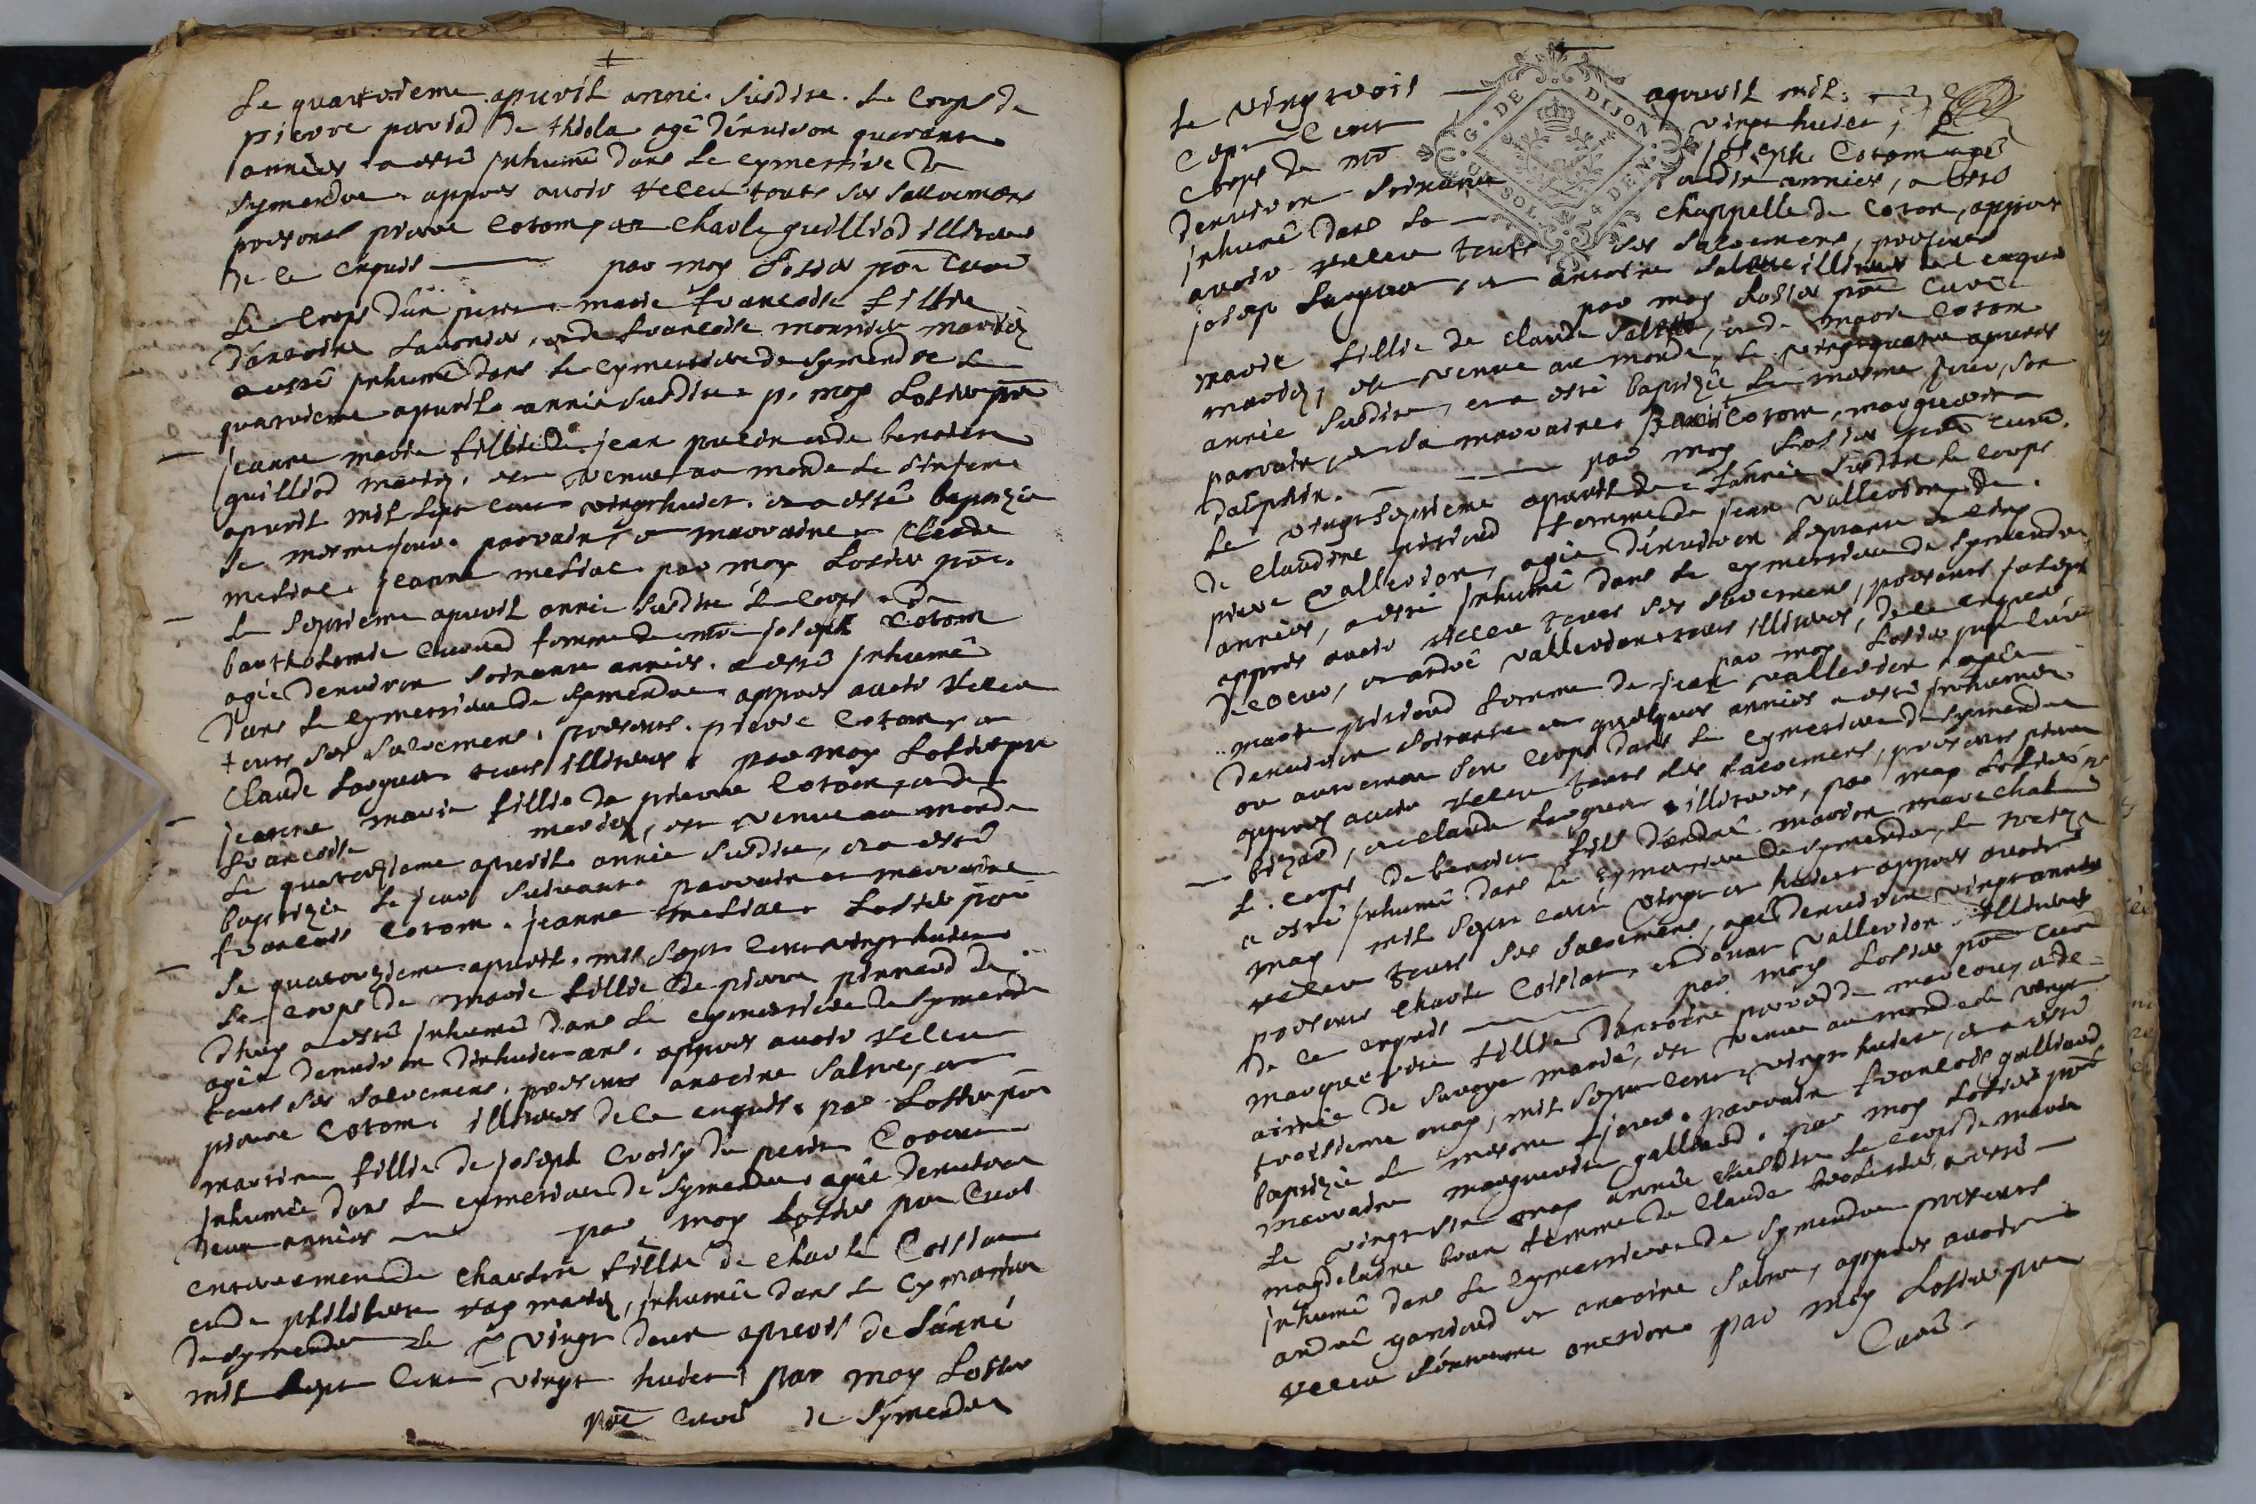 Le quatrieme apuril année susdite le corps de
pierre parrod de thiola agé dénuiron quarante
années a esté jnhumé dans le cymettire de
Symendre appres auoir receu touts ses sacremens
presens pierre Cotom, et Charle guilliod illiteres
de ce enquis par moy Lostie pre Curé
Le corps dún jeune marie francoise fillie
dántoine Lauonier, et de francoise monnier mariéz
a esté jnhumé dans le cymettire de Symendre le
quatrieme apuril année susdite p. moy Lostie pre
jeanne marie fillie de jean pucin et de benoite
guilliod mariéz, est venue au monde le sixieme
apuril mil sept cent vingt huict et a esté baptizée
le mesme jour parrain, et marraine Claude
mesiat jeanne mesiat par moy Lostie pre
Le septieme apuril année susdite le corps de
bartholomie Curoud femme de mre joseph Cotom
agée denuiron soixante années a esté jnhumé
dans le cymettire de Symendre appres auoir receu
touts ses sacremens, presens pierre Cotom, et
Claude Loyseur touts illiteres par moy Lostie pre
jeanne marie fillie de pierre Cotom, et de
francoise mariéz, est venue au monde
Le quatorzieme apuril année susdite, et a esté
baptizée le jour suiuant parrain et marraine
francois Cotom, jeanne mesiat Lostie pre
Le quatorzieme apuril mil sept cent vingt huict
Le corps de marie fillie de pierre pernoud de
a esté jnhumé dans le cymettire de Symendre
agée denuiron dixhuict ans, appres auoir receu
touts ses sacremens, presens antoine Salure, et
pierre Cotom illiteres de ce enquis par Lostie pre
martine fillie de joseph Croisy du petit
jnhumée dans le cymettire de Symendre agée denuiron
deux années par moy Lostie pre Curé
enterrement de Charlote fillie de Charle Coissiat
et de philiberte ray mariéz, jnhumée dans le Cymettire
de Symendre le vingt deux apuril de lánné
mil sept cent vingt huict, par moy Lostie
pre Curé de Symendre
Le vingt trois apuril mil
sept cent vingt huict, le
corps de mre joseph Cotom agé
denuiron soixante et dix années, a esté
jnhumé dans la chappelle de Cotom, appres
auoir receu touts ses sacremens, presens
josep et antoine Salure illiteres de ce enquis
par moy Lostie pre Curé
marie fillie de claude Salure, et de marie Cotom
mariéz, est venue au monde, le vingt quatre apuril
année susdite, et a esté baptizée le mesme jour, son
parrain, et sa marraine Cotom, marguerite
dalphin. par moy Lostie pre Curé
Le vingt septieme apuril de lánnée susdite le corps
de Claudine pirioud femme de jean Vallerion, de
pierre Vallerion, agée dénuiron septante et cinq
années, a esté jnhumé dans le cymettire de Symendre
appres auoir receu touts ses sacremens, presens joseph
et andré Vallerion touts illiteres, de ce enquis
par moy Lostie pre Curé
marie pirioud femme de jean Vallerion agée
denuiron soixante et quelques années a esté jnhumée
ou autrement son corps dans le cymettire de Symendre
appres auoir receu touts ses sacremens, presens pierre
bizard, et claude Loyseur illiteres, par moy Lostie pre
Le corps de benoit fils dándré martin marechal
a esté jnhumé dans le cymettire de Symendre, le treize
may mil sept cent vingt et huict appres auoir
receu touts ses sacremens, agé denuiron vingt années
presens Charle Coissiat, et Vallerion illiteres
de ce enquis par moy Lostie pre Curé
marguerite fillie dántoine parrod de et de
aimée de Sauoye mariés, est venue au monde le vingt
troisieme may, mil sept cent vingt huict, et a esté
baptizée le mesme jour, parrain francois galliard
marraine marguerite galliard, par moy Lostie pre
Le vingt may année susdite le corps de marie
magdelaine femme de Claude a esté
jnhumé dans le cymettire de Symendre presens
andré goriaud et antoine Salure, appres auoir
receu léxtreme onction par moy Lostie pre
Curé
G. DE DIJON
SOL. 4 DEN.